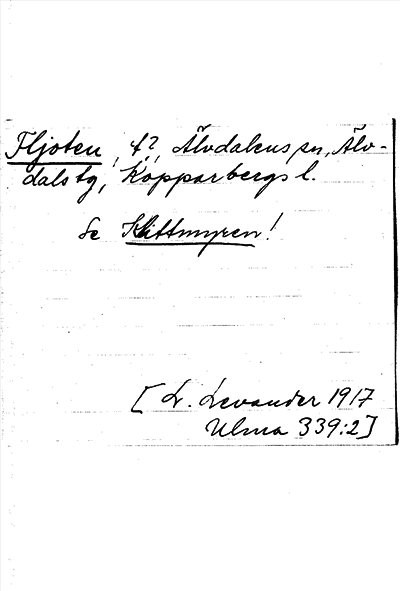 Fljoten, f?, Älvdalens sn, Älv-
dals tg, Kopparbergs l.
Se Klittmyren!
[L. Levander 1917
Ulma 339:2]